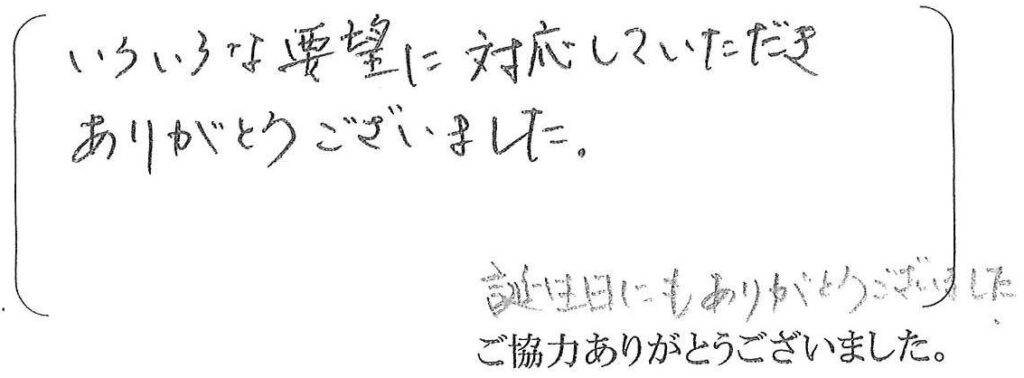 いろいろな要望に対応していただき
ありがとうございました。
誕生日にもありがとうございました
ご協力ありがとうございました。